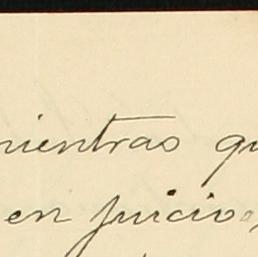 mientras qu
en juicio,